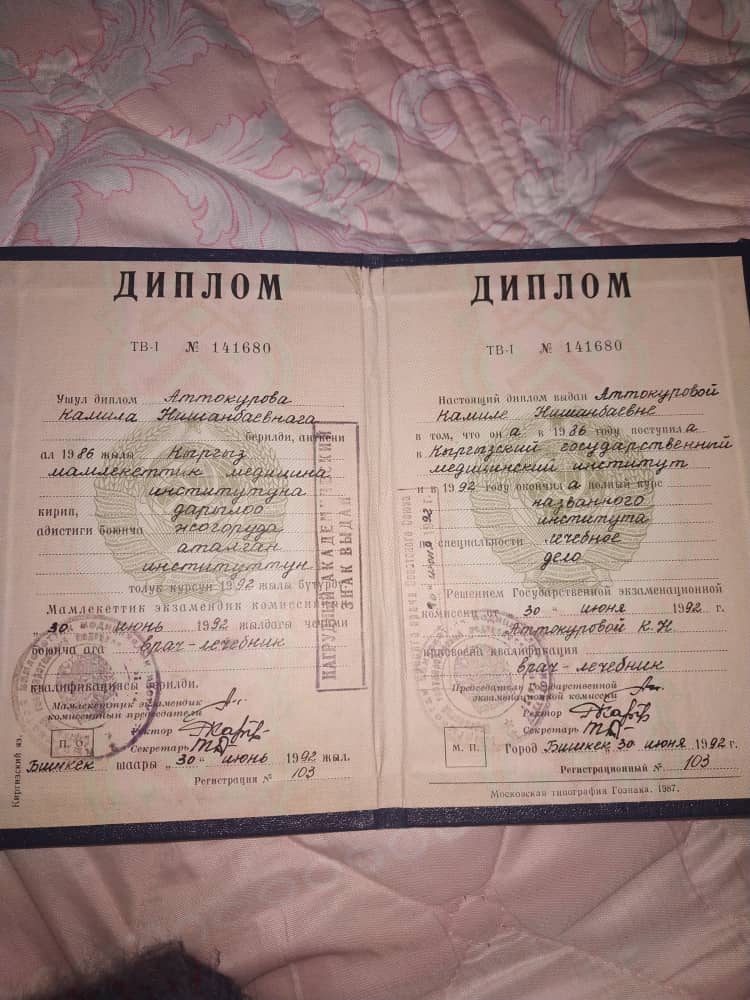 ДИПЛОМ
ТВ-I № 141680
Ушул диплом Аттокурова
Камила Нишанбаевнага
берилди, анткени
ал 1986 жылы Кыргыз
мамлекеттик медицина
институтуна
кирип, дарылоо
адистиги боюнча жогоруда
аталган
институттун
толук курсун 1992 жылы бүтүрдү
Мамлекеттик экзамендик комиссиянын
„30“ июнь 1992 жылдагы чечими
боюнча ага врач-лечебник
квалификациясы берилди.
Мамлекеттик экзамендик
комиссиянын председатели
Ректор
Секретарь
П. О.
Бишкек шаары „30“ июнь 1992 жыл.
Регистрация № 103
Киргизский яз.
НАГРУДНЫЙ АКАДЕМИЧЕСКИЙ
ЗНАК ВЫДАН
ДИПЛОМ
ТВ-I № 141680
Настоящий диплом выдан Аттокуровой
Камиле Нишанбаевне
в том, что она в 1986 году поступила
в Кыргызский государственный
медицинский институт
и в 1992 году окончила полный курс
названного
института
по специальности лечебное
дело
Решением Государственной экзаменационной
комиссии от 30 июня 1992 г.
Аттокуровой К.Н.
присвоена квалификация
врач-лечебник
Председатель Государственной
экзаменационной комиссии
Ректор
Секретарь
М. П.
Город Бишкек 30 июня 1992 г.
Регистрационный № 103
Московская типография Гознака. 1987.
врача Советского Союза
„30“ июня 1992 г.